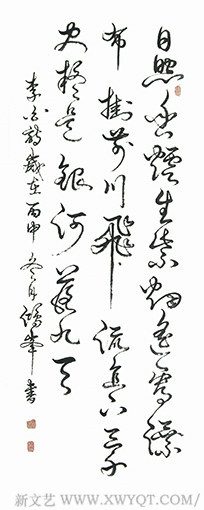 日照香爐生紫烟遥看瀑
布掛前川飛流直下三千
尺疑是銀河落九天
李白詩歲在丙申冬月鴻峯書
新文艺 / WWW.XWYQT.COM/